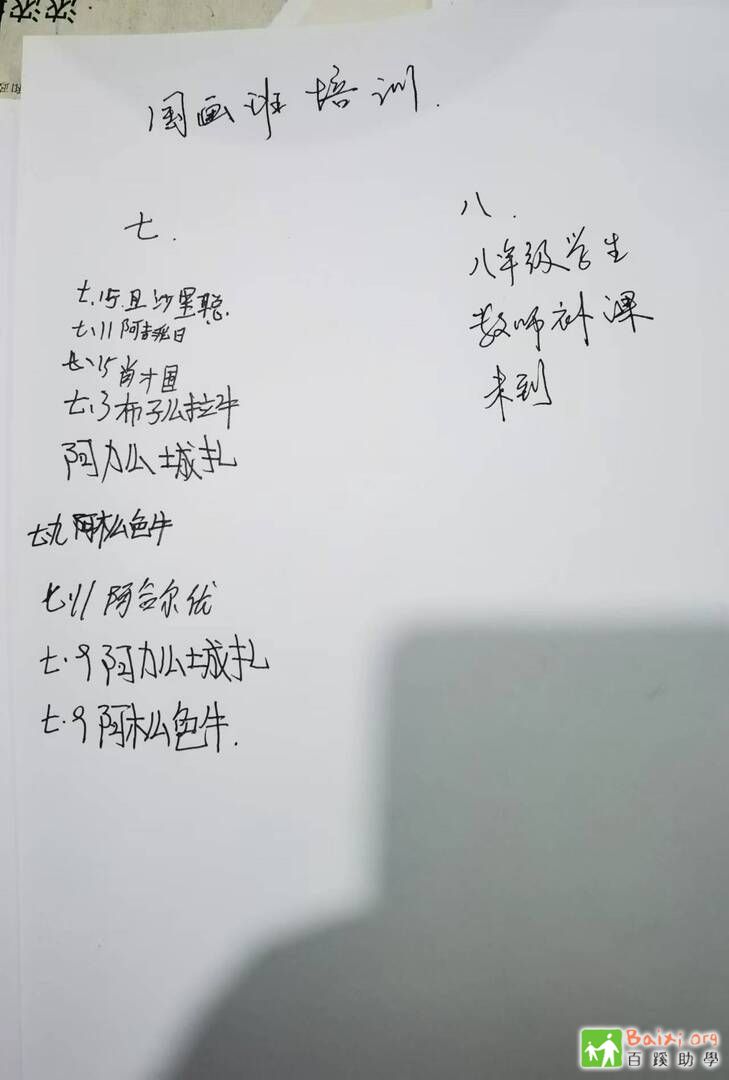 国画班培训.
七.
七.15.且沙里聪.
七.11阿吉 日
七.15肖才国
七.3布子么拉牛
阿力么城扎
七九阿木么色牛
七.11阿合尔优
七.9阿力么城扎
七.9阿木么色牛.
八.
八年级学生
教师补课
未到
Baixi.org
百蹊助學